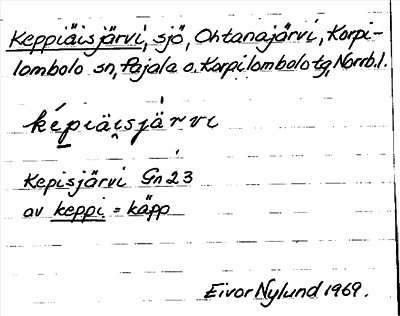 Keppiäisjärvi, sjö, Ohtanajärvi, Korpi-
lombolo sn, Pajala o. Korpilombolo tg, Norrb.l.
képiäi̯sjä̀rvi
Kepisjärvi Gn 23
av keppi = käpp
Eivor Nylund 1969.